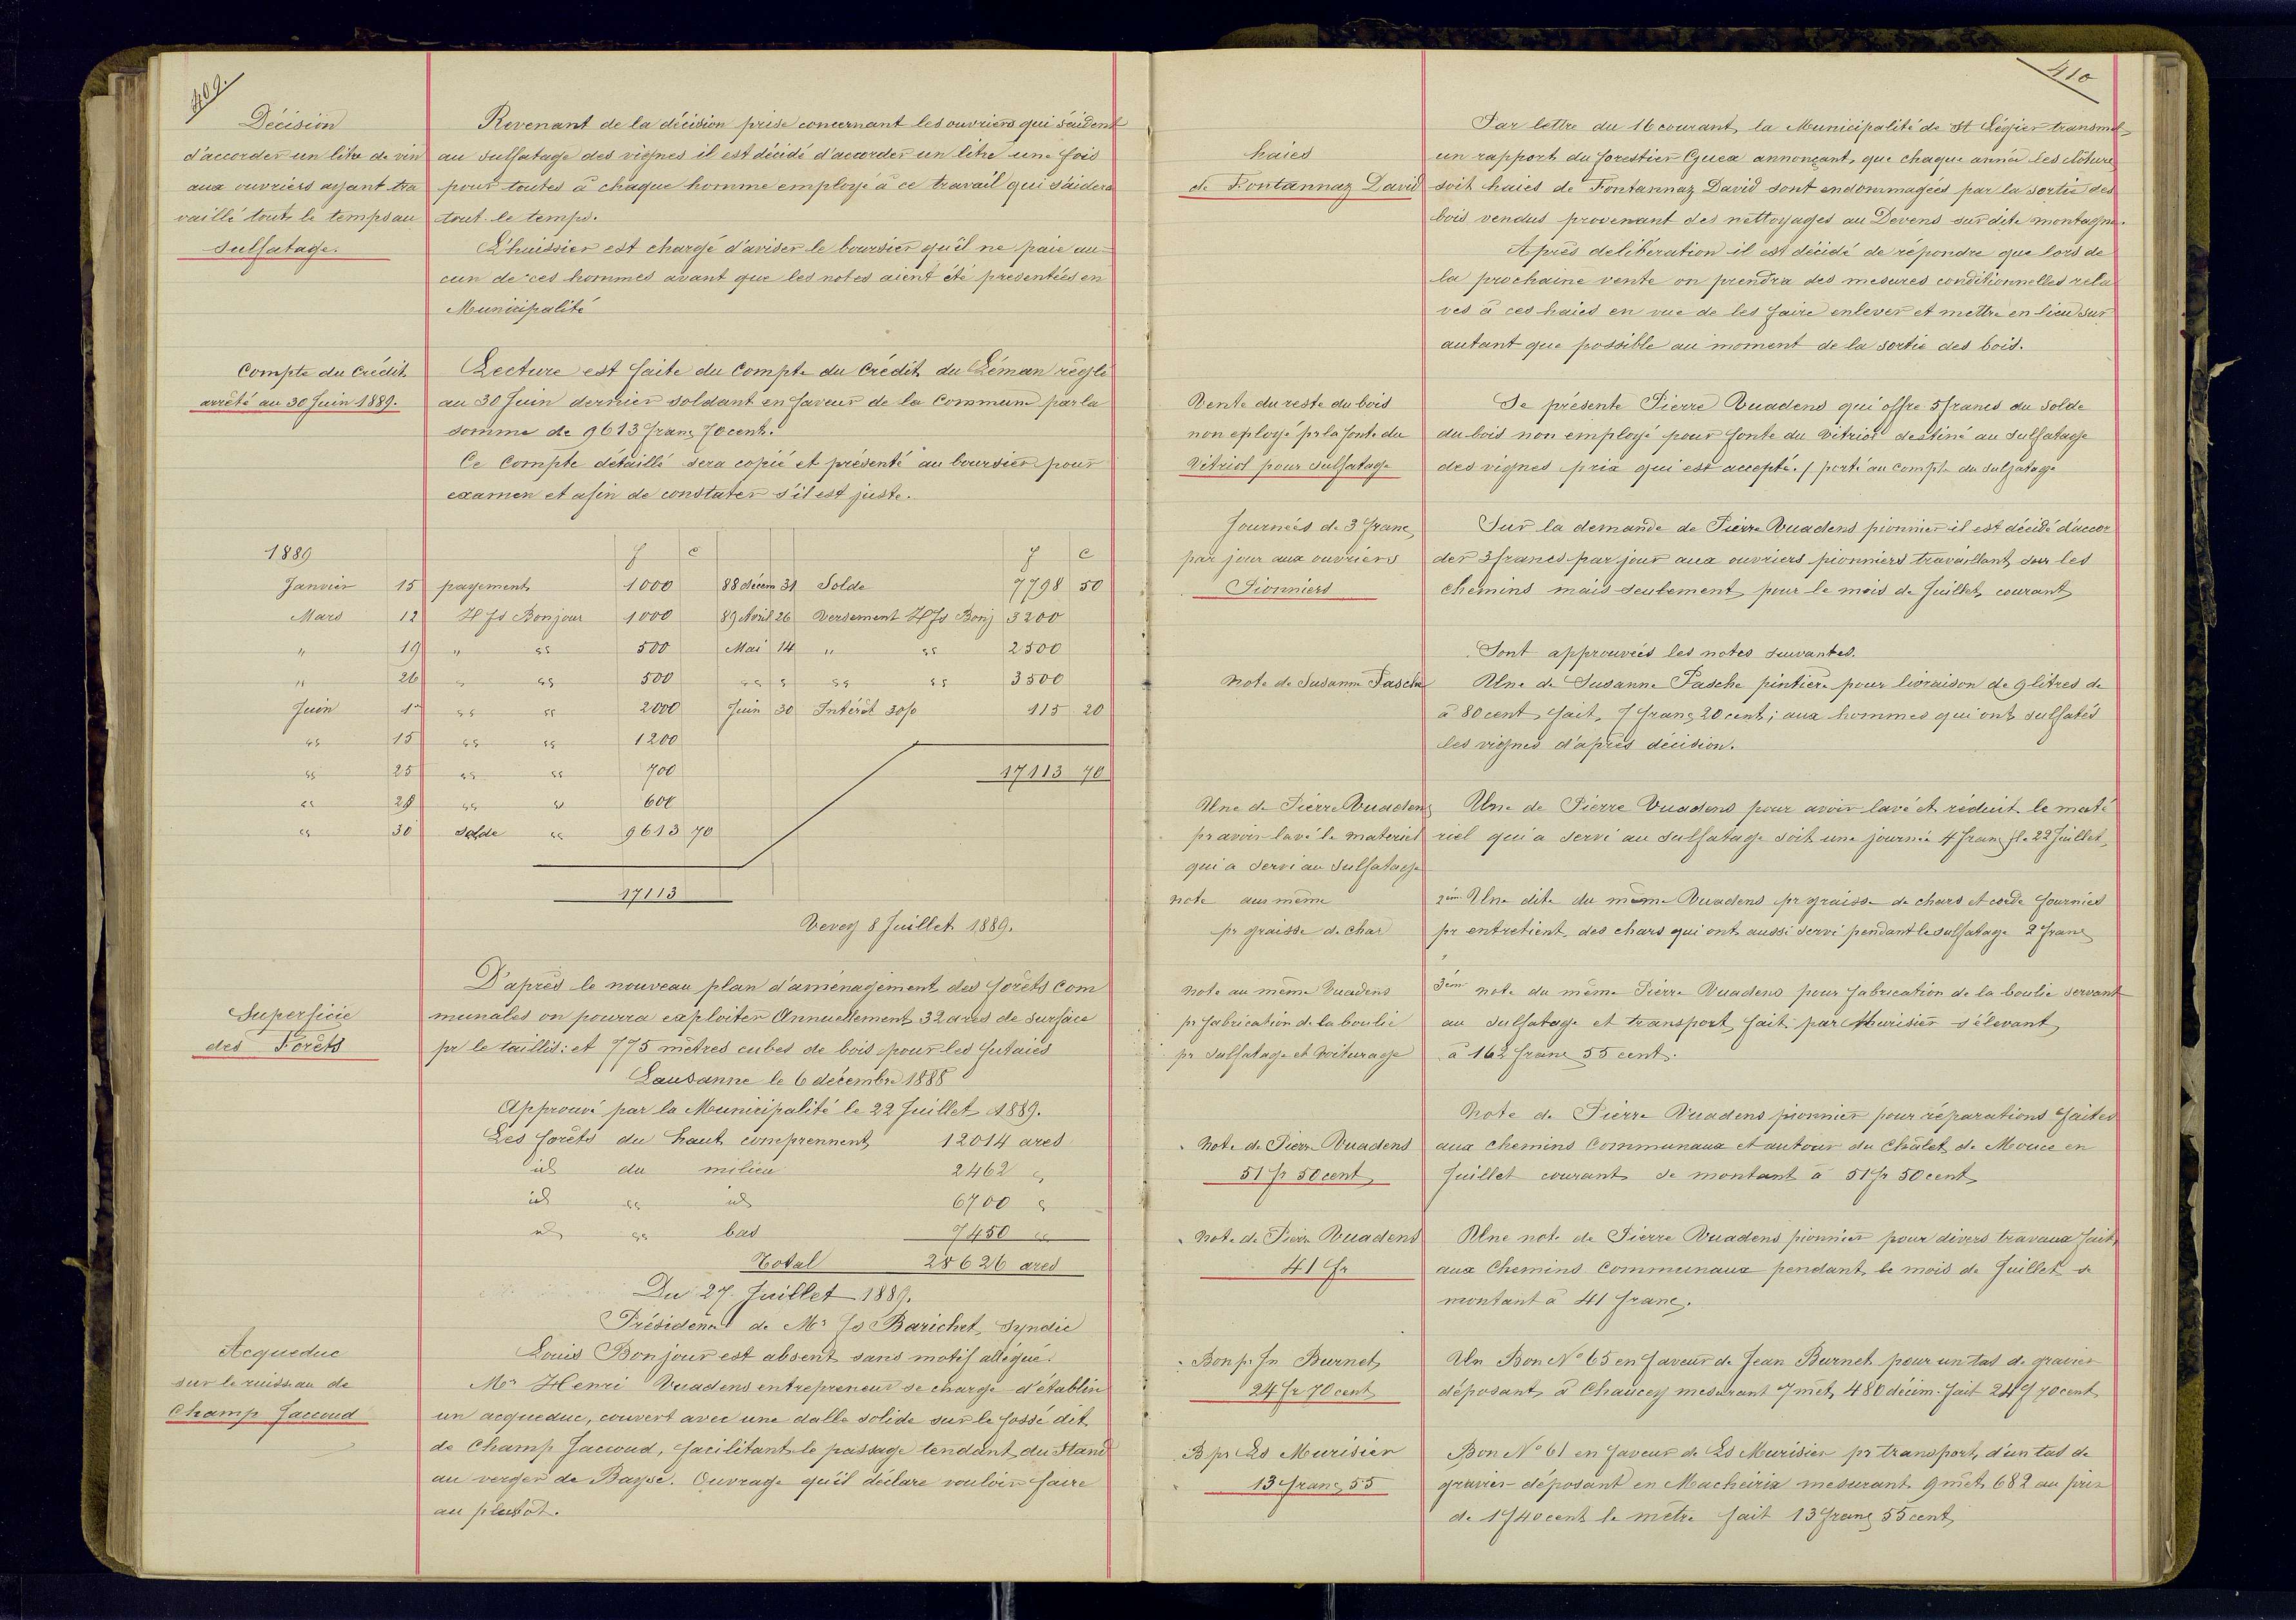 409.
Décision
d'accorder un litre de vin
aux ouvriers ayant tra
vaillé tout le temps au
sulfatage.
Revenant de la décision prise concernant les ouvriers qui s'aident
au sulfatage des vignes il est décidé d'accorder un litre une fois
pour toutes à chaque homme employé à ce travail qui s'aidera
tout le temps.
L'huissier est chargé d'aviser le boursier qu'il ne paie au-
cun de ces hommes avant que les notes aient été presentées en
Municipalité
Compte du Crédit
arrêté au 30 Juin 1889.
Lecture est faite du Compte du Crédit du Léman réglé
au 30 Juin dernier soldant en faveur de la Commune par la
somme de 9613 franc 70 cent.
Ce Compte détaillé sera copié et présenté au boursier pour
examen et afin de constater s'il est juste.
1889 f c f c
Janvier 15 payement 1000 88 décem 31 Solde 7798 50
Mars 12 H Js Bonjour 1000 89 Avril 26 Versement H Js Bonj 3200
" 19 " " 500 Mai 14 " " 2500
" 26 " " 500 " " " " 3500
Juin 1er " " 2000 Juin 30 Intérêt 3% 115 20
" 15 " " 1200
" 25 " " 700 17113 70
" 28 " " 600
" 30 solde " 9613 70
17113
Vevey 8 Juillet 1889.
Superficie
des Forêts
D'après le nouveau plan d'aménagement des forêts com
munales on pourra exploiter Annuellement 32 ares de surface
pr le taillis: et 775 mètres cubes de bois pour les futaies
Lausanne le 6 décembre 1888
Approuvé par la Municipalité le 22 Juillet 1889.
Les forêts du haut comprennent 12014 ares
id du milieu 2462 "
id " id 6700 "
id " bas 7450 "
Total 28626 ares
Du 27 Juillet 1889.
Présidence de Mr Js Barichet, Syndic
Acqueduc
sur le ruisseau de
Champ Jaccoud
Louis Bonjour est absent sans motif allégué.
Mr Henri Vuadens entrepreneur se charge d'établir
un acqueduc, couvert avec une dalle solide sur le fossé dit
de Champ Jaccoud, facilitant le passage tendant du Stand
au verger de Baysé. Ouvrage qu'il déclare vouloir faire
au plustôt.
410
haies
de Fontannaz David
Par lettre du 16 courant, la Municipalité de St Légier transmet
un rapport du forestier Guex annonçant, que chaque année les clôture
soit haies de Fontannaz David sont endommagées par la sortie des
bois vendus provenant des nettoyages au Devens sur dite montagne.
Après delibération il est décidé de répondre que lors de
la prochaine vente on prendra des mesures conditionnelles rela
ves à ces haies en vue de les faire enlever et mettre en lieu sur
autant que possible au moment de la sortie des bois.
Vente du reste du bois
non eployé pr la fonte du
Vitriol pour sulfatage
Se présente Pierre Vuadens qui offre 5 francs du solde
du bois non employé pour fonte du Vitriol destiné au sulfatage
des vignes prix qui est accepté. / porté au compte du sulfatage
Journées de 3 franc
par jour aux ouvriers
Pionniers
Sur la demande de Pierre Vuadens pionnier il est décidé d'accor
der 3 francs par jour aux ouvriers pionniers travaillant sur les
chemins mais seulement pour le mois de Juillet courant
Sont approuvées les notes suivantes.
Note de Susanne Pasche
Une de Susanne Pasche pintière pour livraison de 9 litres de
à 80 cent fait, 7 franc 20 cent; aux hommes qui ont sulfatés
les vignes d'après décision.
Une de Pierre Vuadens
pr avoir lavé le materiel
qui a servi au sulfatage
Une de Pierre Vuadens pour avoir lavé et réduit le maté
riel qui a servi au sulfatage soit une journée 4 franc / le 22 Juillet,
note au même
pr graisse de char
2èm Une dite du même Vuadens pr graisse de chars et corde fournies
pr entretient des chars qui ont aussi servi pendant le sulfatage 2 franc
Note au même Vuadens
pr fabrication de la boulie
pr sulfatage et Voiturage
3èm note du même Pierre Vuadens pour fabrication de la boulie servant
au sulfatage et transport fait par Murisier s'élevant
à 162 franc 55 cent.
Note de Pierre Vuadens
51 fr 50 cent
Note de Pierre Vuadens pionnier pour réparations faites
aux chemins Communaux et autour du Châlet de Mouce en
Juillet courant se montant à 51 fr 50 cent
Note de Pierre Vuadens
41 fr
Une note de Pierre Vuadens pionnier pour divers travaux fait,
aux Chemins Communaux pendant le mois de Juillet se
montant à 41 franc.
Bon pr Jn Burnet
24 fr 70 cent
Un Bon No 65 en faveur de Jean Burnet pour un tas de gravier
déposant à Chaucey mesurant 7 mèt, 480 décim. fait 24 f 70 cent
B pr Ls Murisier
13 franc 55
Bon No 61 en faveur de Ls Murisier pr transport d'un tas de
gravier déposant en Macheirix mesurant 9 mèt 682 au prix
de 1 f 40 cent le mètre fait 13 franc 55 cent